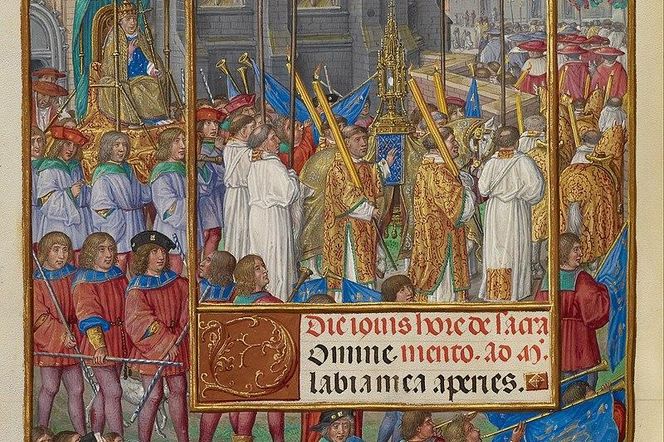 Die iouis hore de sacra
DOmine. mento. ad m̃.
labia mea aperies.